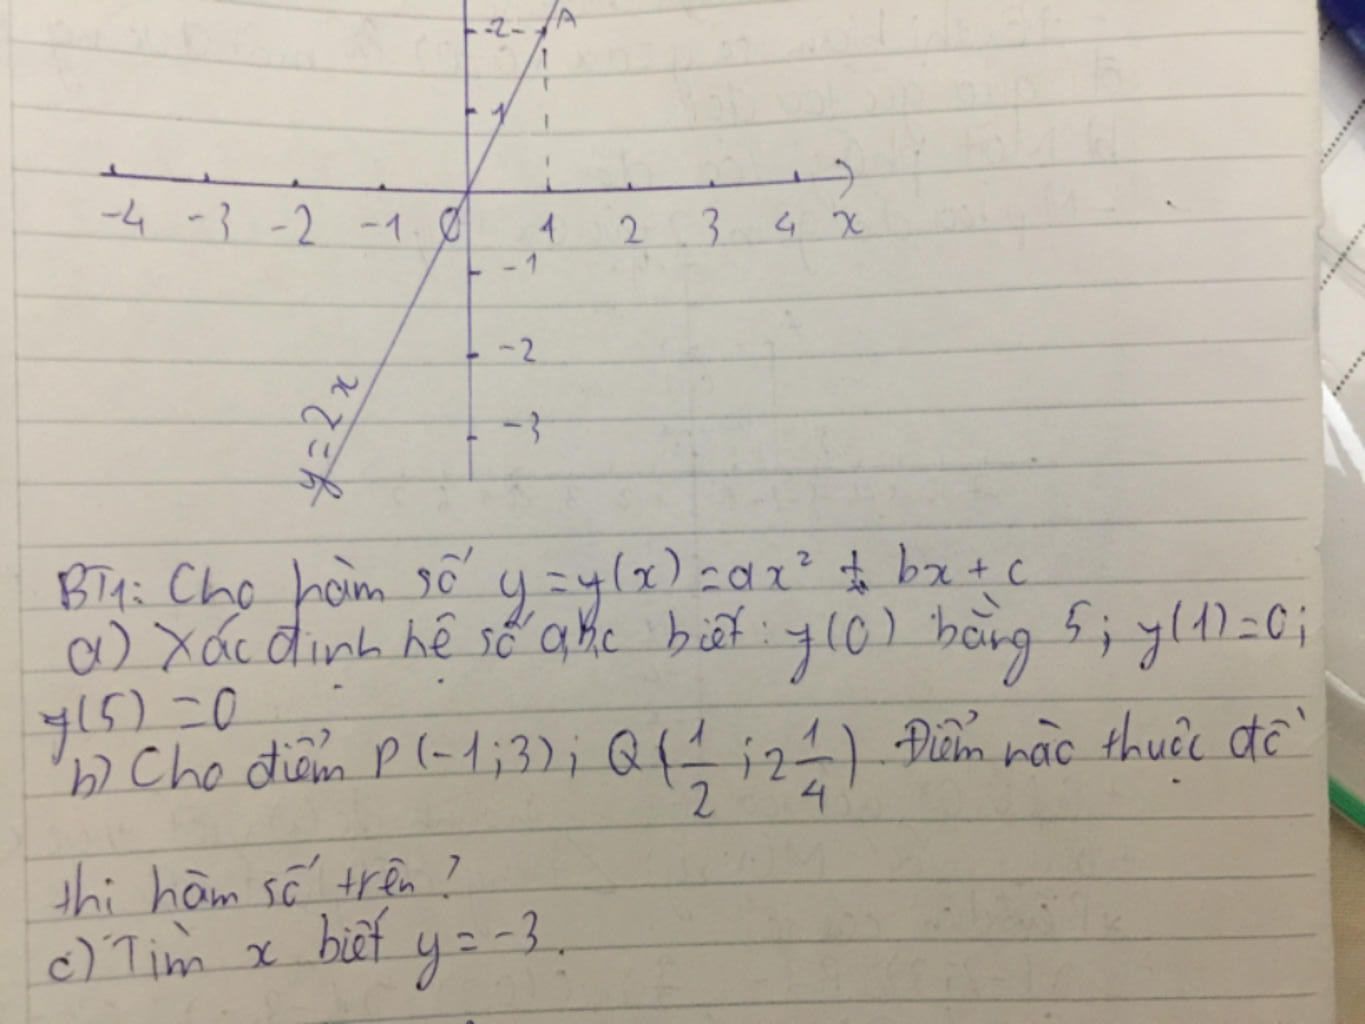 -2- A
1
-4 -3 -2 -1 0 1 2 3 4 x
-1
-2
-3
y = 2x
BT1: Cho hàm số y = y(x) = ax² + bx + c
a) Xác định hệ số a,b,c biết: y(0) bằng 5; y(1) = 0;
y(5) = 0
b) Cho điểm P(-1;3); Q(1/2; 2 1/4). Điểm nào thuộc đồ
thị hàm số trên?
c) Tìm x biết y = -3.